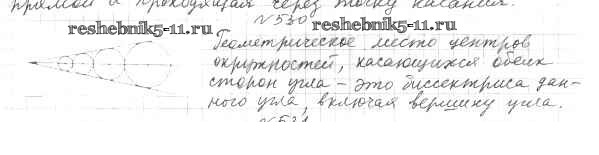 прямой и проходящая через точку касания.
N 530
reshebnik5-11.ru
reshebnik5-11.ru
Геометрическое место центров
окружностей, касающихся обеих
сторон угла – это биссектриса дан-
ного угла, включая вершину угла.
N 531